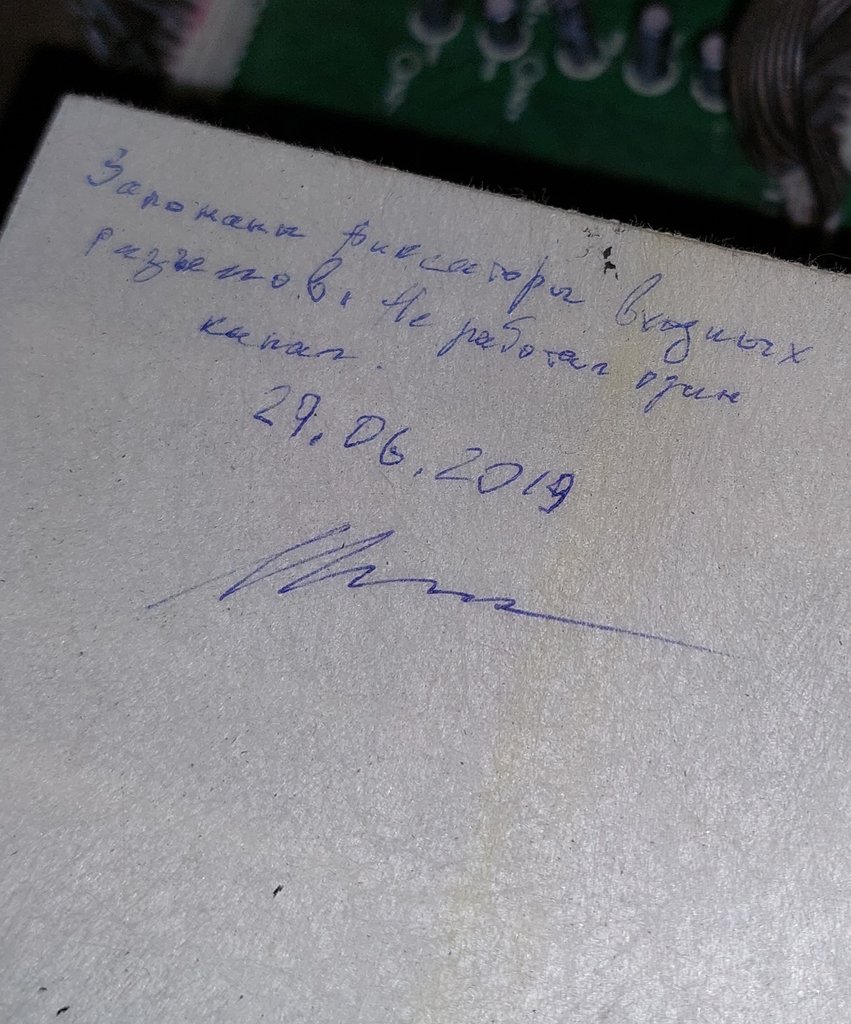 Заломаны фиксаторы входных
разъемов. Не работал один
канал.
29.06.2019